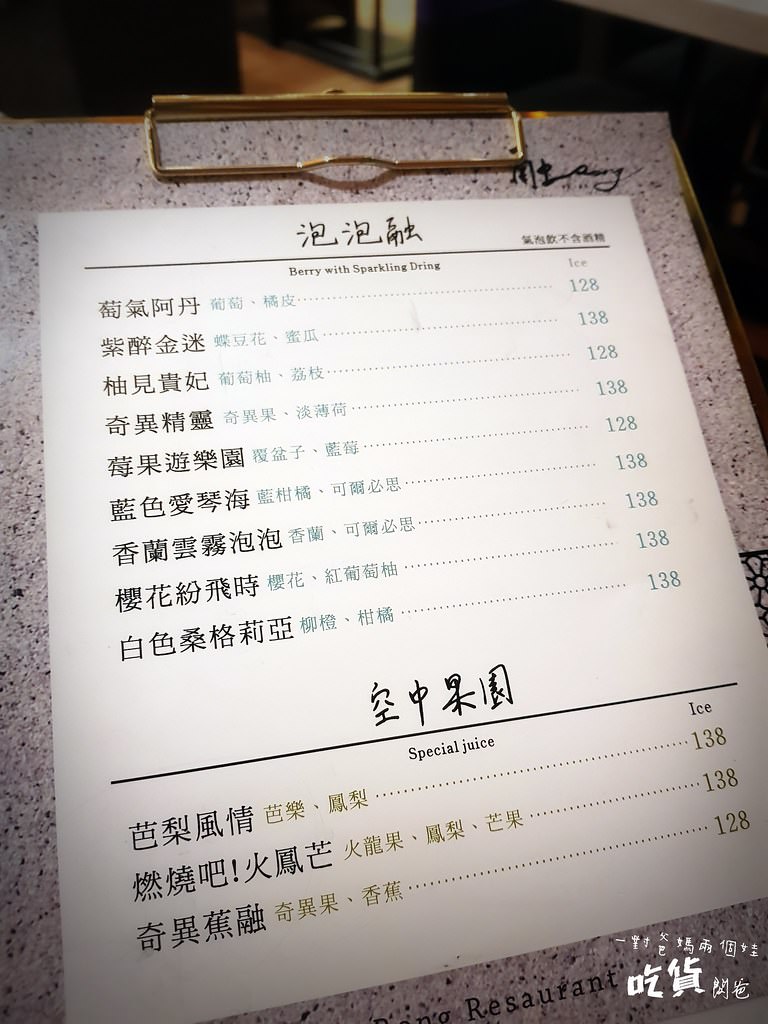 泡泡融
氣泡飲不含酒精
Berry with Sparkling Dring
Ice
萄氣阿丹 葡萄、橘皮 128
紫醉金迷 蝶豆花、蜜瓜 138
柚見貴妃 葡萄柚、荔枝 128
奇異精靈 奇異果、淡薄荷 138
莓果遊樂園 覆盆子、藍莓 128
藍色愛琴海 藍柑橘、可爾必思 138
香蘭雲霧泡泡 香蘭、可爾必思 138
櫻花紛飛時 櫻花、紅葡萄柚 138
白色桑格莉亞 柳橙、柑橘 138
空中果園
Special juice
Ice
芭梨風情 芭樂、鳳梨 138
燃燒吧!火鳳芒 火龍果、鳳梨、芒果 138
奇異蕉融 奇異果、香蕉 128
Rong Resaurant
一對爸媽兩個娃
吃貨